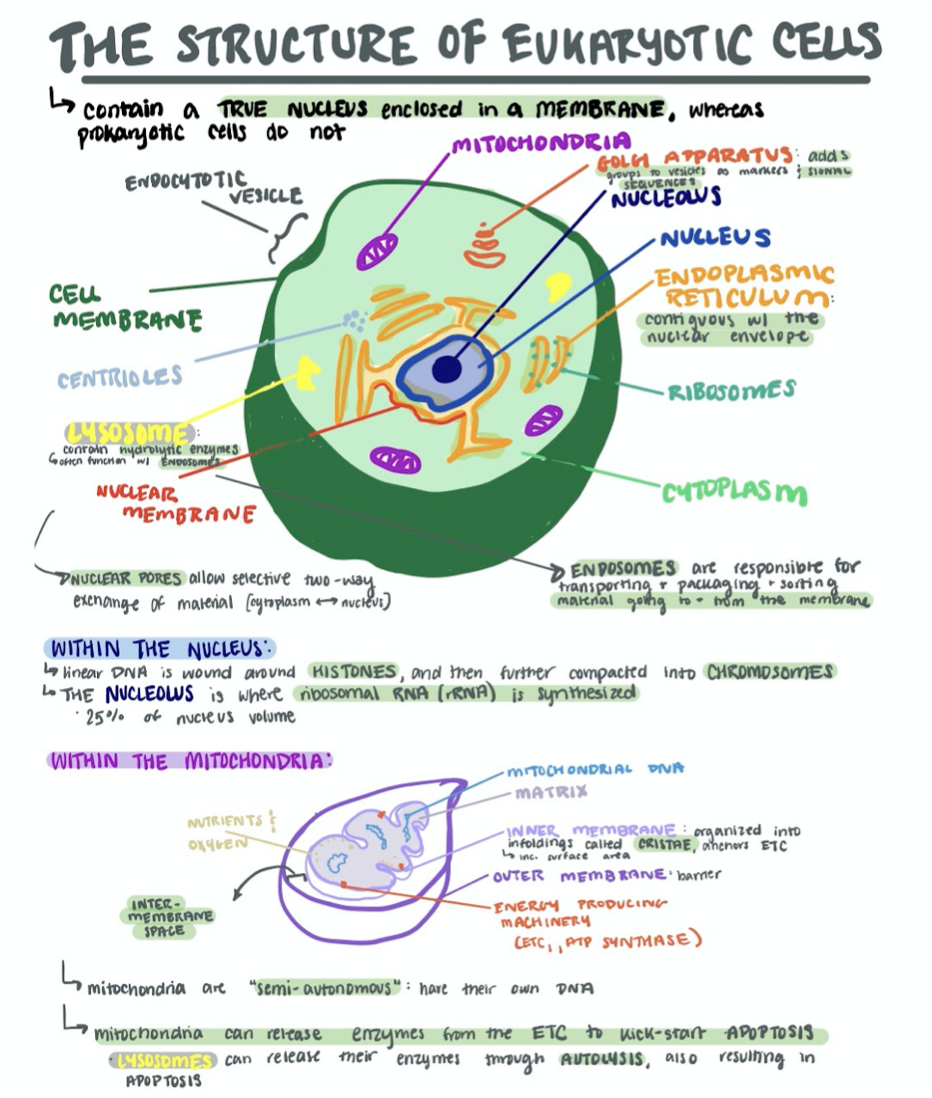 THE STRUCTURE OF EUKARYOTIC CELLS
↳ contain a TRUE NUCLEUS enclosed in a MEMBRANE, whereas
prokaryotic cells do not
MITOCHONDRIA
GOLGI APPARATUS: adds
groups to vesicles as markers & SIGNAL
SEQUENCES
NUCLEOLUS
ENDOCYTOTIC
VESICLE
NUCLEUS
ENDOPLASMIC
RETICULUM:
contiguous w/ the
nuclear envelope
CELL
MEMBRANE
CENTRIOLES
RIBOSOMES
LYSOSOME:
contain hydrolytic enzymes
↳ often function w/ ENDOSOMES
NUCLEAR
MEMBRANE
CYTOPLASM
NUCLEAR PORES allow selective two-way
exchange of material (cytoplasm ↔ nucleus)
ENDOSOMES are responsible for
transporting + packaging + sorting
material going to + from the membrane
WITHIN THE NUCLEUS:
↳ linear DNA is wound around HISTONES, and then further compacted into CHROMOSOMES
↳ THE NUCLEOLUS is where ribosomal RNA (rRNA) is synthesized
· 25% of nucleus volume
WITHIN THE MITOCHONDRIA:
MITOCHONDRIAL DNA
MATRIX
NUTRIENTS &
OXYGEN
INNER MEMBRANE: organized into
infoldings called CRISTAE, anchors ETC
↳ inc. surface area
OUTER MEMBRANE: barrier
INTER-
MEMBRANE
SPACE
ENERGY PRODUCING
MACHINERY
(ETC, ATP SYNTHASE)
↳ mitochondria are "semi-autonomous": have their own DNA
↳ mitochondria can release enzymes from the ETC to kick-start APOPTOSIS
· LYSOSOMES can release their enzymes through AUTOLYSIS, also resulting in
APOPTOSIS